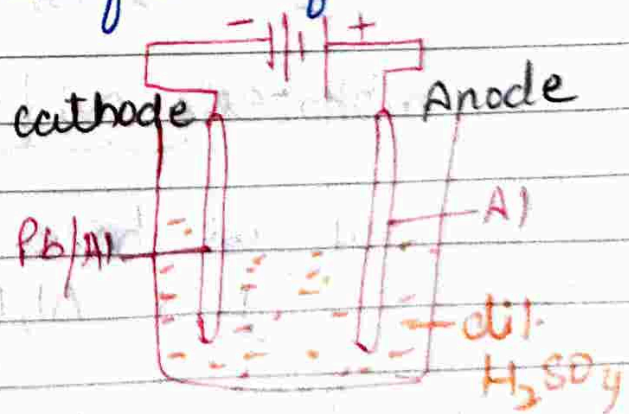 - +
cathode Anode
Pb/Al Al
dil.
H₂SO₄